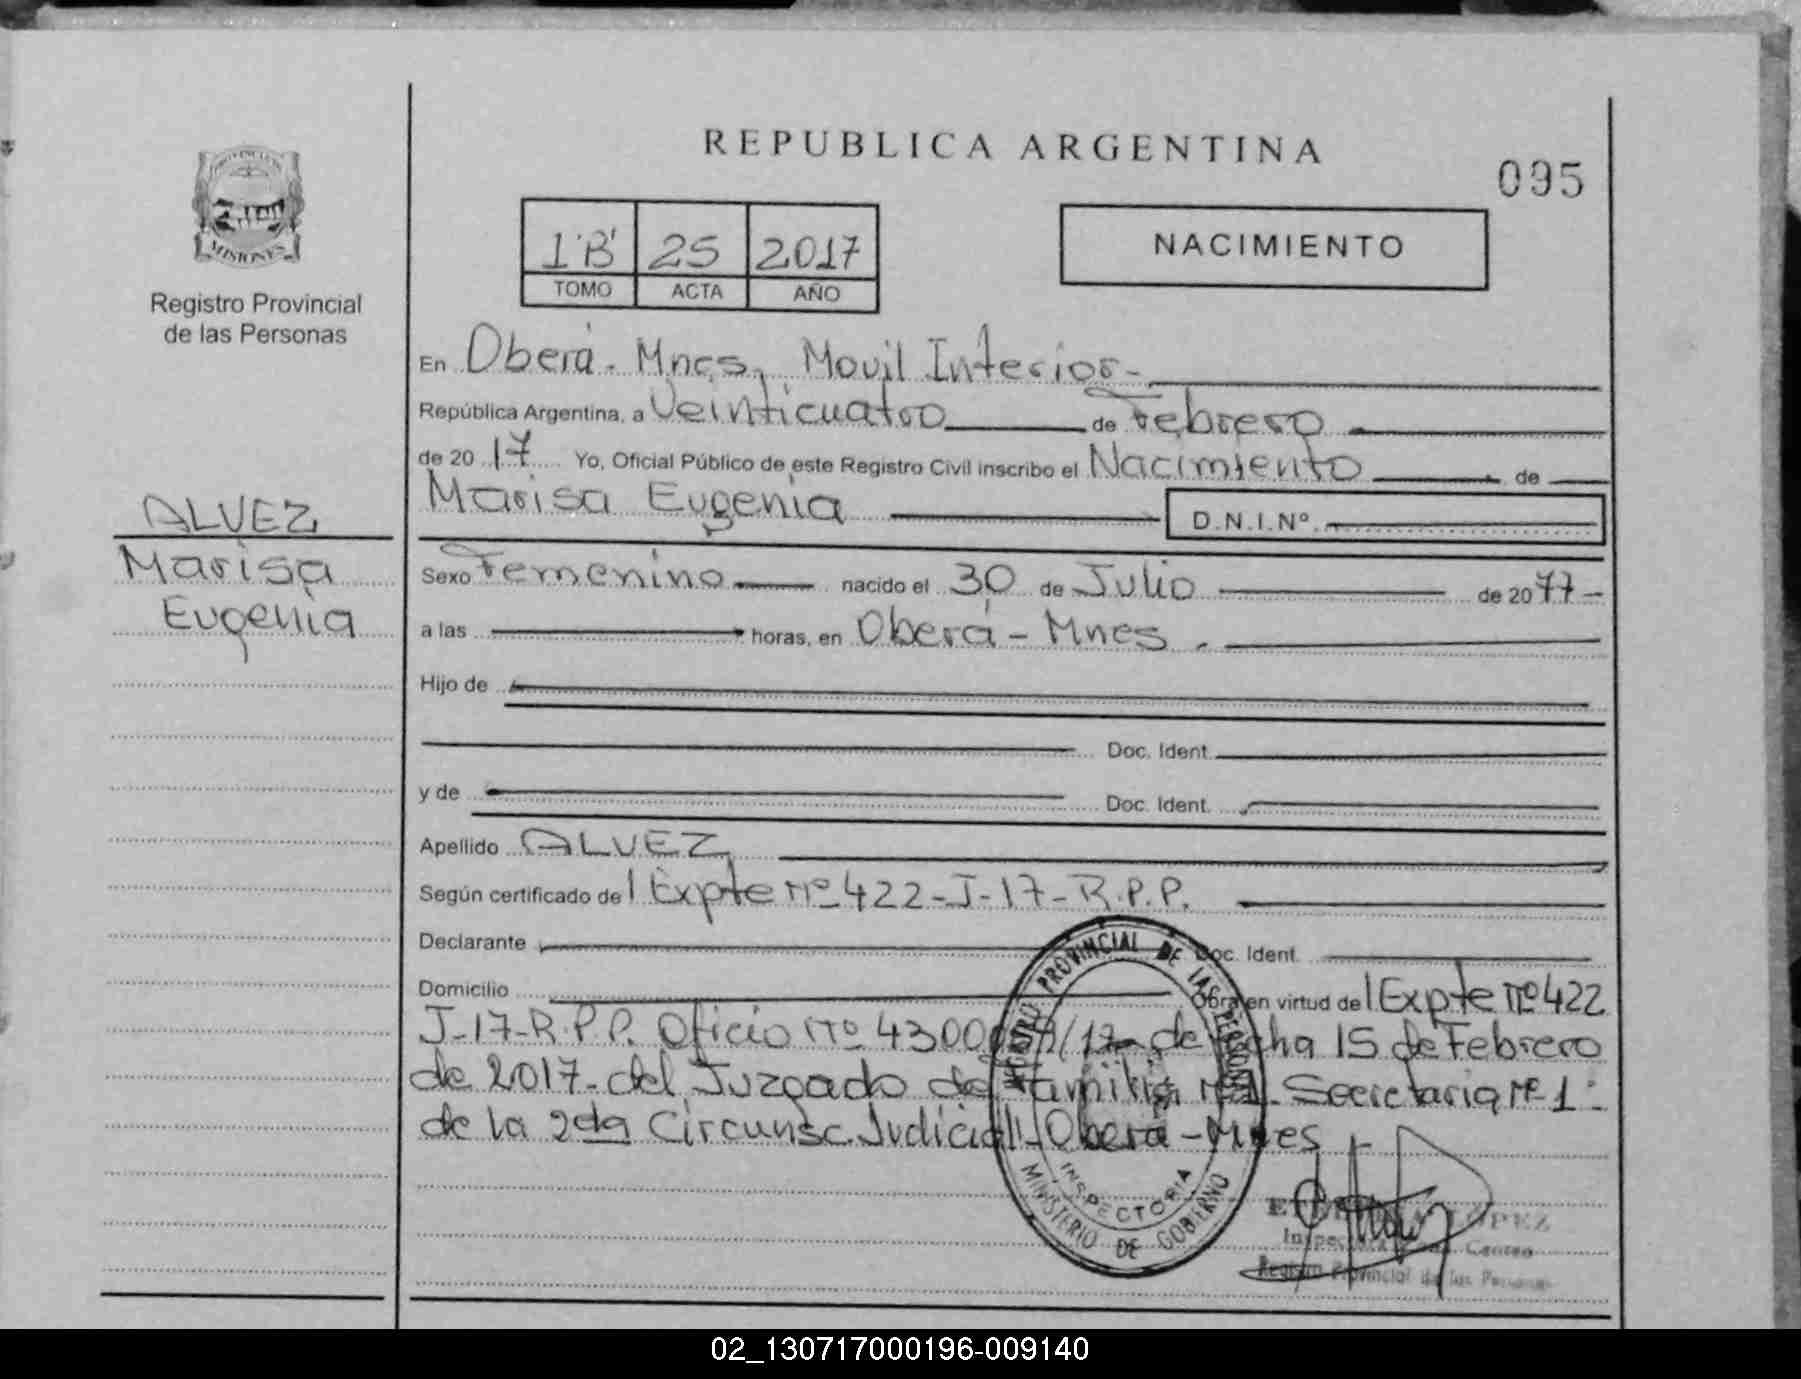 REPUBLICA ARGENTINA
095
PROVINCIA DE
MISIONES
Registro Provincial
de las Personas
1'B' 25 2017
TOMO ACTA AÑO
NACIMIENTO
En Oberá. Mnes, Movil Interior-
República Argentina, a Veinticuatro de Febrero
de 20 17 Yo, Oficial Público de este Registro Civil inscribo el Nacimiento de
Marisa Eugenia D.N.I.Nº
ALVEZ
Marisa
Eugenia
Sexo Femenino nacido el 30 de Julio de 20 77-
a las horas, en Oberá - Mnes.
Hijo de
Doc. Ident.
y de Doc. Ident.
Apellido ALVEZ
Según certificado de Expte nº 422-J-17-R.P.P.
Declarante Doc. Ident.
Domicilio Obra en virtud del Expte nº 422
J-17-R.P.P. Oficio nº de fecha 15 de Febrero
de 2017- del Juzgado de Familia nº 1- Secretaria nº 1-
de la 2da Circunsc. Judicial - Oberá - Mnes
REGISTRO PROVINCIAL DE LAS PERSONAS
INSPECTORIA
MINISTERIO DE GOBIERNO
LOPEZ
Centro
Registro Provincial de las Personas
02_130717000196-009140